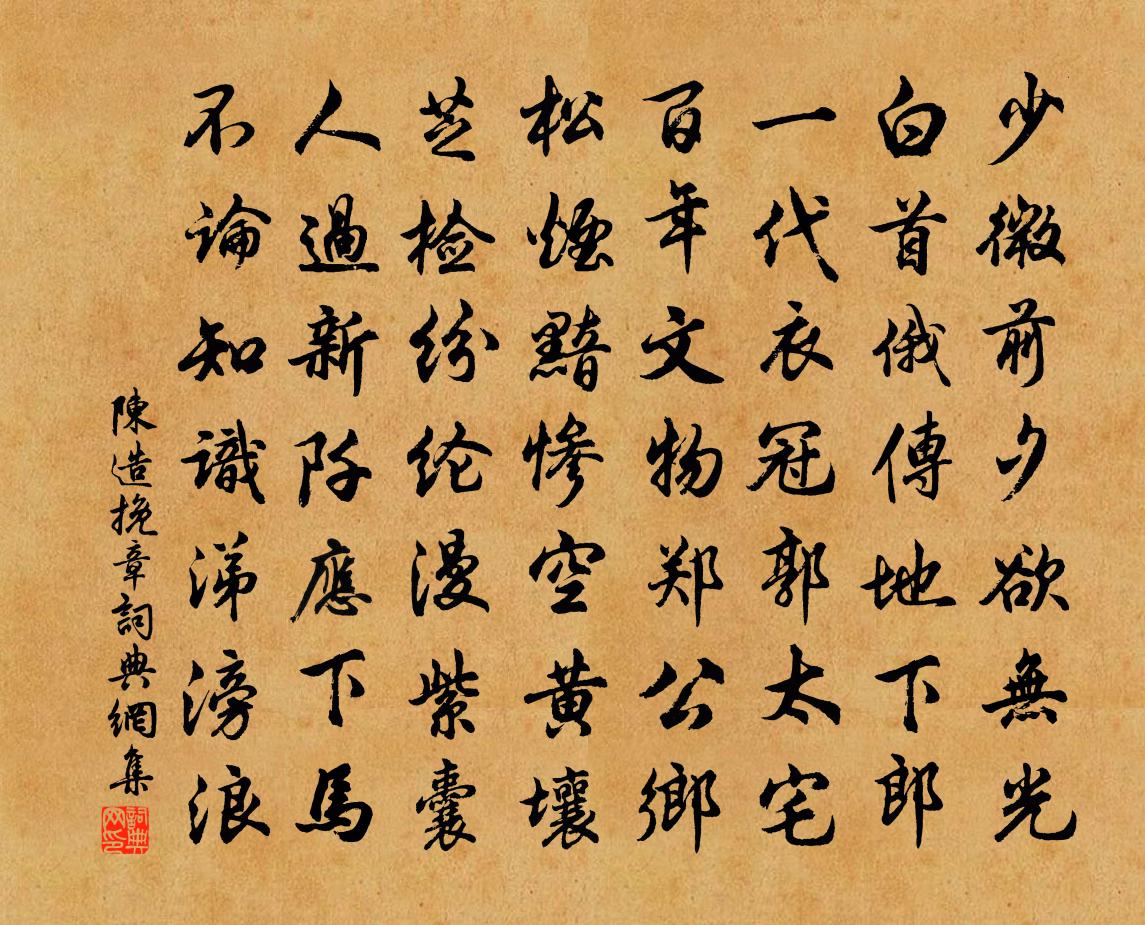 少微前夕欲無光
白首俄傳地下郎
一代衣冠郭太宅
百年文物郑公鄉
松煙黯慘空黃壤
芝検纷纶漫紫囊
人過新阡應下馬
不論知識涕滂浪
陳造挽章詞典網集
詞典网印